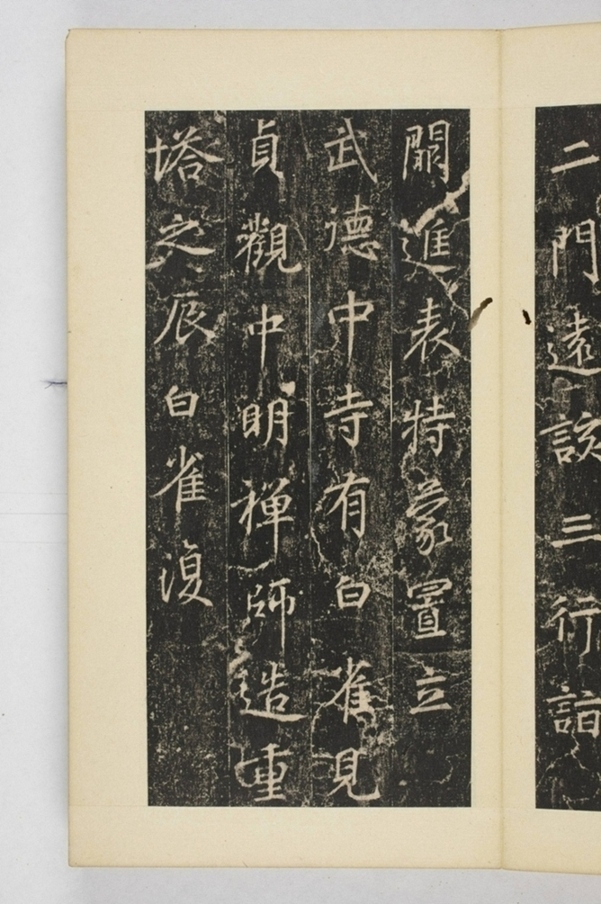 二門遠該三行詣
闕進表特蒙置立
武德中寺有白雀見
貞觀中明禅師造重
塔之辰白雀復